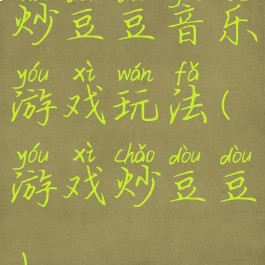 炒豆豆音乐
yóu xì wán fǎ
游戏玩法(
yóu xì chǎo dòu dòu
游戏炒豆豆
)